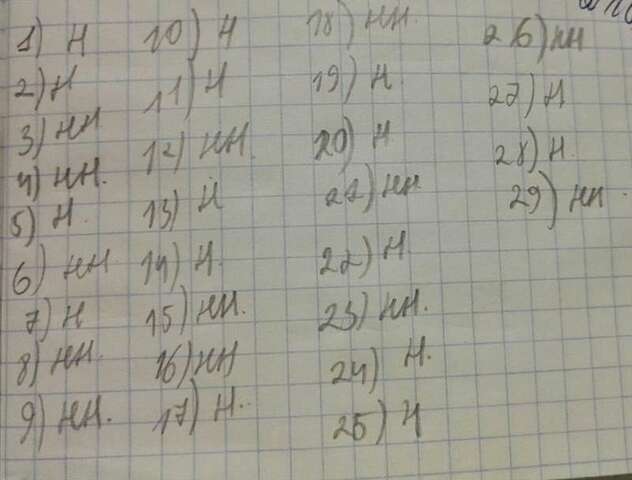 1) Н
2) Н
3) НН
4) НН.
5) Н.
6) НН
7) Н
8) НН.
9) НН.
10) Н
11) Н
12) НН.
13) Н
14) Н.
15) НН.
16) НН
17) Н.
18) НН.
19) Н.
20) Н
21) НН
22) Н.
23) НН.
24) Н.
25) Н
26) НН
27) Н
28) Н.
29) НН.